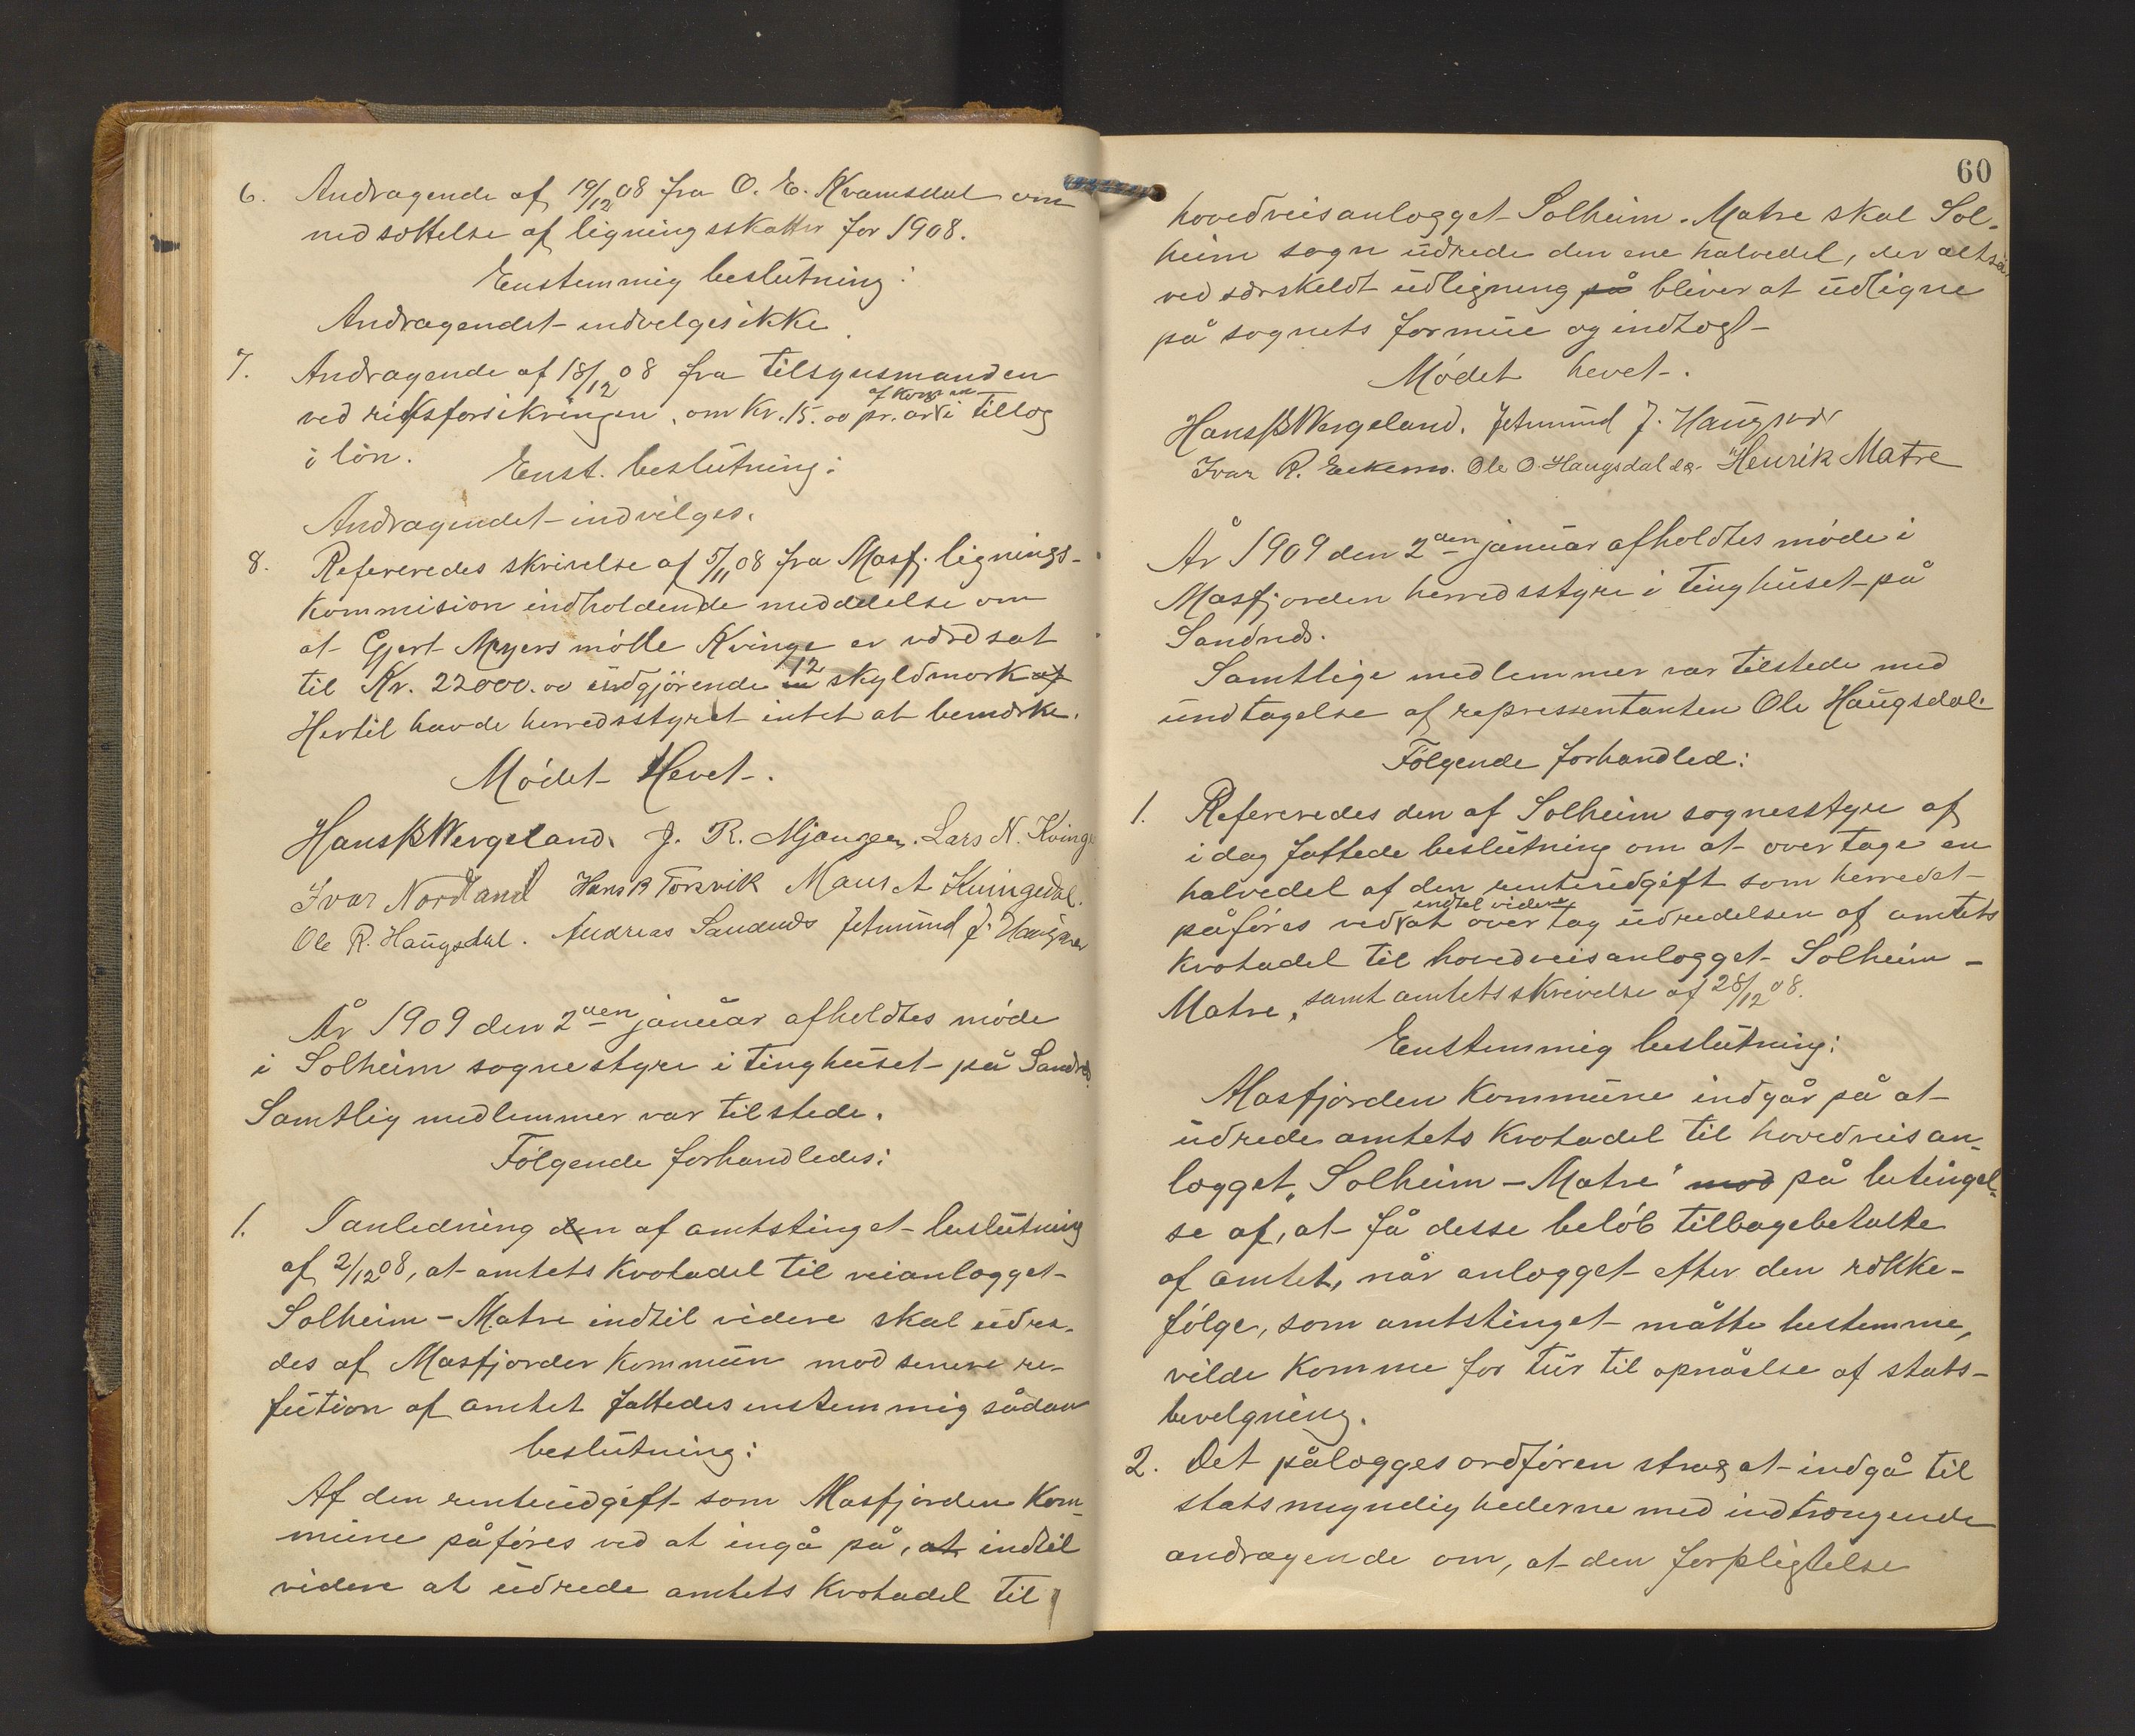 6. Andragende af 19/12 08 fra O. E. Kvamsdal om
nedsættelse af ligningsskatter for 1908.
Enstemmig beslutning:
Andragendet indvelges ikke.
7. Andragende af 18/12 08 fra tilsynsmanden
ved riksforsikringen, om Kr. 15.00 pr. ar i tillæg
i løn.
Enst. beslutning:
Andragendet indvilges.
8. Refereredes skrivelse af 5/11 08 fra Masfj. lignings-
kommision indholdende meddelelse om
at Gjert Meyers mølle Kvinge er værdsat
til Kr. 22000.00 undgjørende 12 skyldmark af
Hertil havde herredsstyret intet at bemærke.
Mødet Hevet.
Hans B Wergeland. J. R. Mjanger. Lars N. Kvinge
Ivar Nordland Hans B Torsvik Mans A Kvingedal.
Ole R. Haugsdal. Andreas Sandnæs Jetmund J. Haugsvær
År 1909 den 2den januar afholdtes møde
i Solheim sognestyre i tinghuset på Sandnæs
Samtlig medlemmer var tilstede.
Følgende forhandledes:
1. I anledning den af amtstinget beslutning
af 2/12 08, at amtets kvotadel til veianlægget
Solheim - Matre indtil videre skal udre-
des af Masfjorden kommun mod senere re-
fution af amtet fattedes enstemmig sådan
beslutning:
Af den renteudgift som Masfjorden Kom-
mune påføres ved at ingå på, at indtil
videre at udrede amtets kvotadel til
60
hovedveisanlægget Solheim - Matre skal Sol-
heim sogn udrede den ene halvedel, der altså
ved særskeldt udligning på bliver at udligne
på sognets formue og indtægt
Mødet hevet.
Hans B Wergeland. Jetmund J. Haugsvær
Ivar R. Ole O. Haugsdal Henrik Matre
År 1909 den 2den januar afholdtes møde i
Masfjorden herredsstyre i tinghuset på
Sandnæs.
Samtlige medlemmer var tilstede med
undtagelse af repressentanten Ole Haugsdal.
Følgende forhandled:
1. Refereredes den af Solheim sognesstyre af
idag fattede beslutning om at overtage en
halvedel af den renteudgift som herredet
påføres ved indtel videre at overtag udredelsen af amtets
kvotadel til hovedveisanlægget Solheim -
Matre, samt amtets skrivelse af 28/12 08.
Enstemmig beslutning:
Masfjorden Kommune indgår på at
udrede amtets kvotadel til hovedveisan-
lægget „Solheim - Matre" mod på betingel-
se af, at få desse beløb tilbagebetalte
af amtet, når anlægget efter den række-
følge, som amtstinget måtte bestemme,
vilde komme for tur til opnåelse af stats-
bevelgning.
2. Det pålægges ordføren strax at indgå til
statsmyndighederne med indtrængende
andragende om, at den forpligtelse